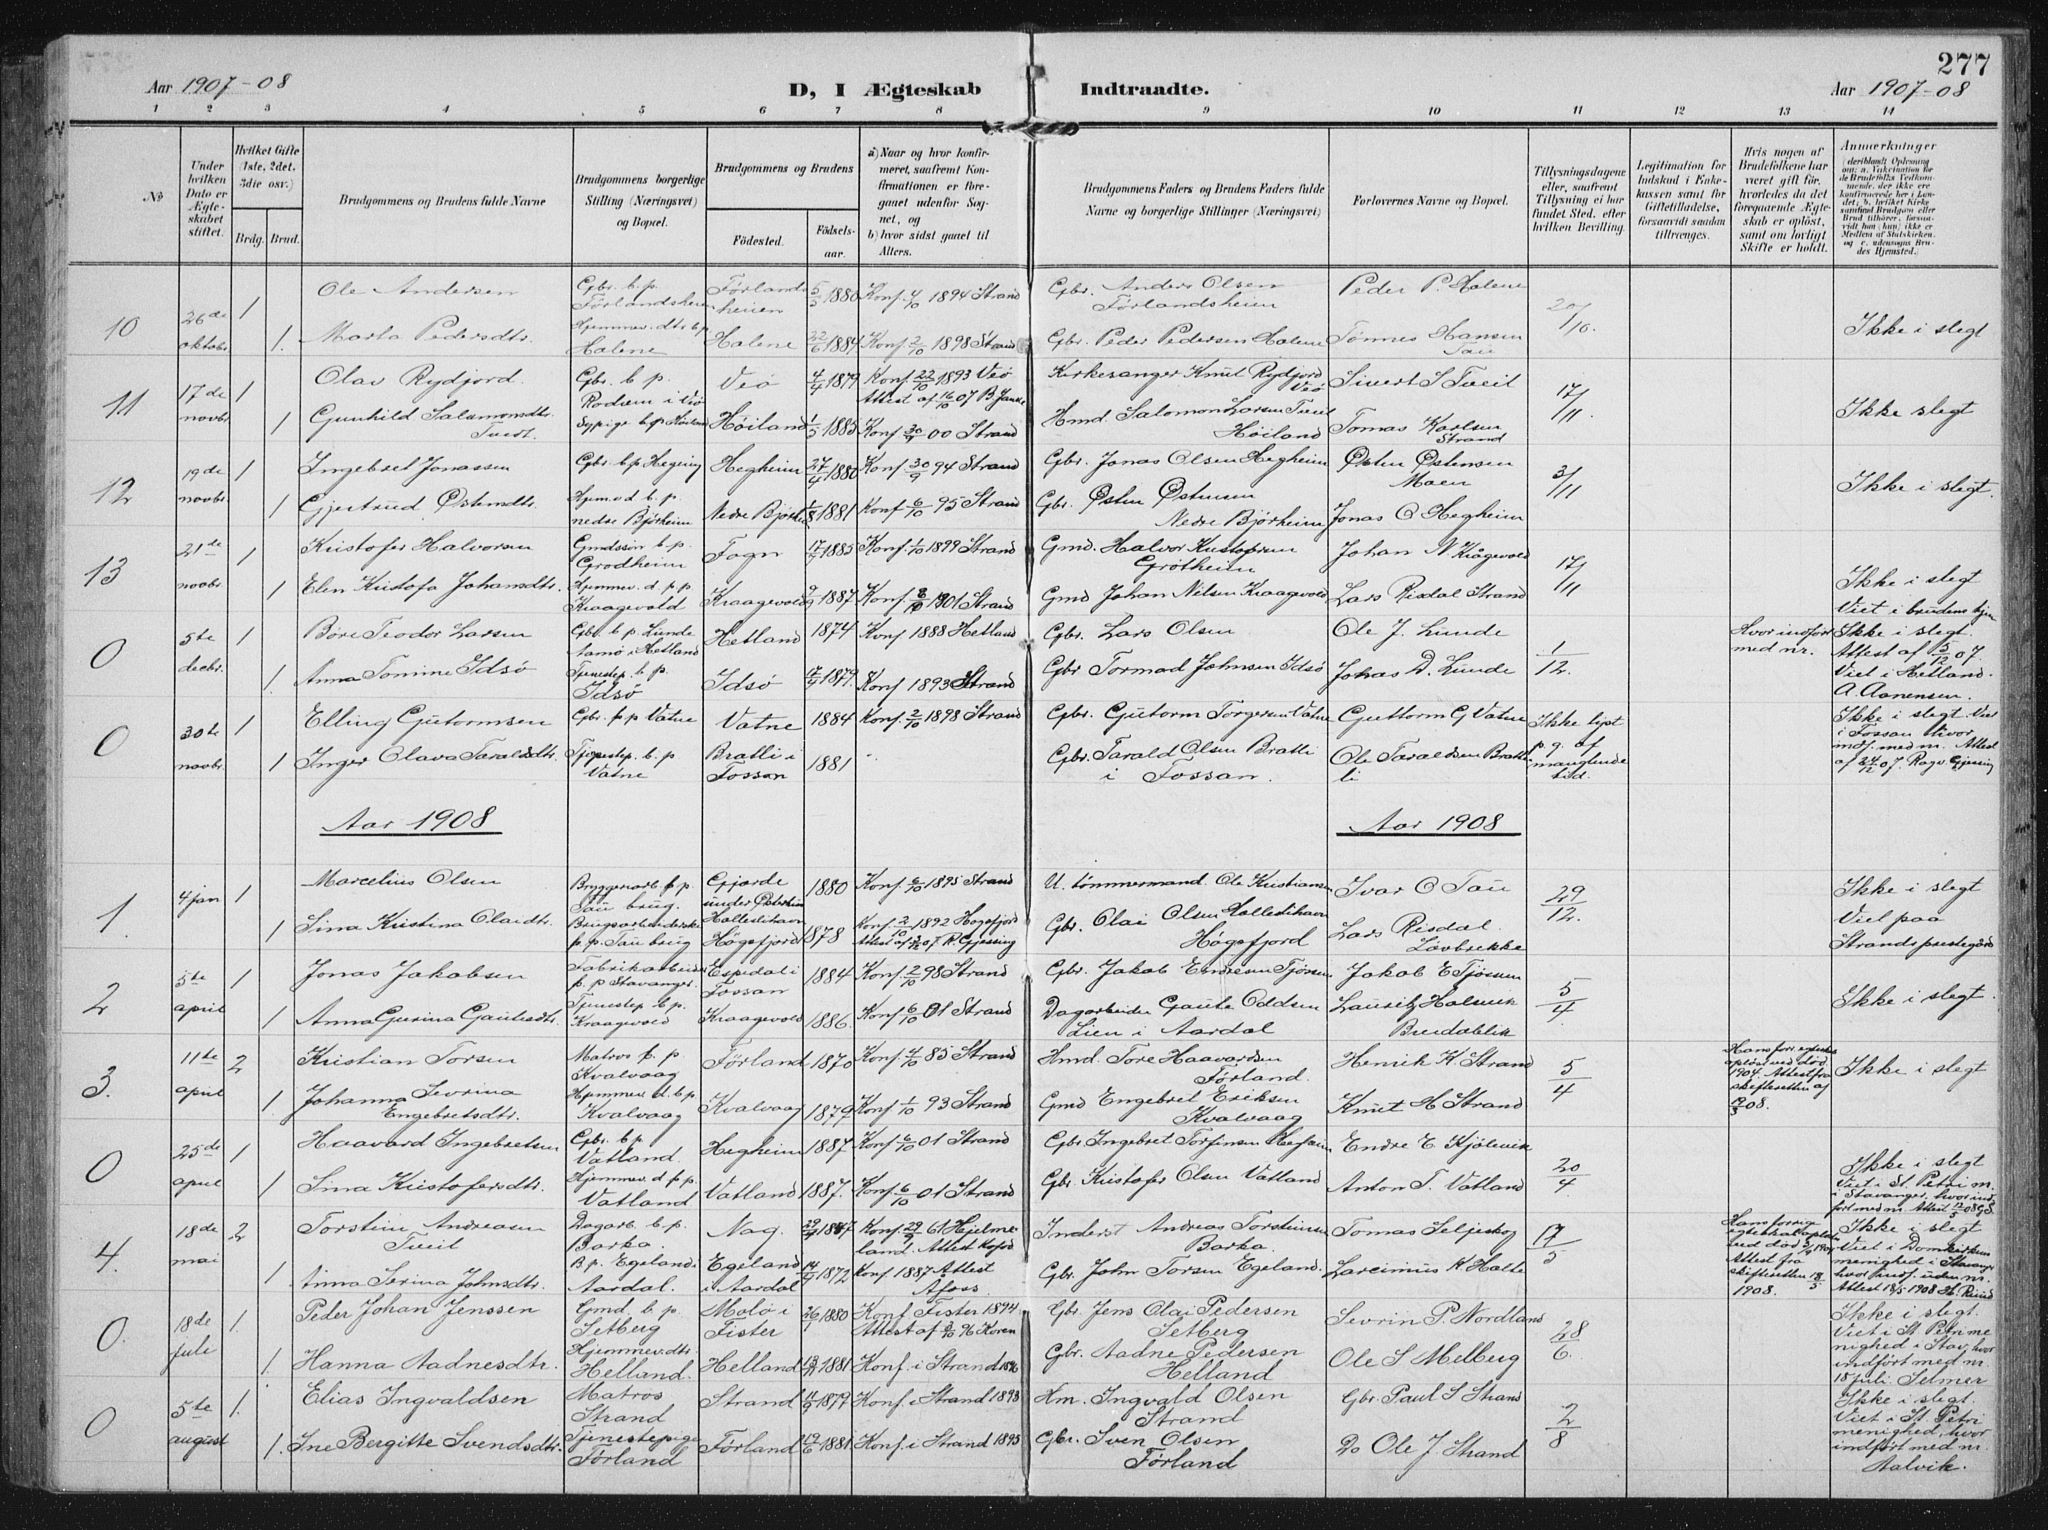 277
Aar 1907-08
D, I Ægteskab Indtraadte.
Aar 1907-08
1 2 3 4 5 6 7 8 9 10 11 12 13 14
No
Under hvilken Dato er Ægteskabet stiftet.
Hvilket Gifte (1ste, 2det, 3die osv.)
Brdg. Brud.
Brudgommens og Brudens fulde Navne
Brudgommens borgerlige Stilling (Næringsvei) og Bopæl.
Brudgommens og Brudens
Fødested.
Fødselsaar.
a) Naar og hvor konfirmeret, saafremt Konfirmationen er foregaaet udenfor Sognet, og
b) hvor sidst gaaet til Alters.
Brudgommens Faders og Brudens Faders fulde Navne og borgerlige Stillinger (Næringsvei)
Forlovernes Navne og Bopæl.
Tillysningsdagene eller, saafremt Tillysning ei har fundet Sted, efter hvilken Bevilling.
Legitimation for Indskud i Enkekassen samt for Giftetilladelse, forsaavidt saadan tiltrænges.
Hvis nogen af Brudefolkene har været gift før, hvorledes da det foregaaende Ægteskab er opløst, samt om lovligt Skifte er holdt.
Anmærkninger
10 26de oktobr 1 Ole Andersen Gbr. b.p. Førlandsheien Førlandsheien 5/5 1880 Konf. 4/10 1894 Strand Gbr. Anders Olsen Førlandsheien Peder P. Halene 20/10.
1. Marta Pedersdtr. Hjemmev. dtr b.p. Halene Halene 22/6 1884 Konf 2/10 1898 Strand Gbr. Peder Pedersen Halene Tønnes Hansen Tau Ikke i slegt
11 17de novbr 1 Olav Rydjord. Gbr. b.p. Rodsem i Veø Veø 4/4 1879 Konf. 22/10 1893 Veø Attest af 16/10 07 Kirkesanger Knut Rydjord Veø Sivert S Tveit 17/11
1 Gunhild Salamonsdtr. Tveit. Sypige b.p. Høiland 1/5 1885 Konf 30/9 00 Strand Hmd. Salomon Larsen Tveit Høiland Tomas Karlsen Strand Ikke slegt
12 19de novbr. 1 Ingebret Jonassen Gbr. b.p. Hegheim 27/4 1880 Konf. 30/9 94 Strand Gbr. Jonas Olsen Hegheim Østen Østensen Moen 3/11
1 Gjertrud Østensdtr. Hjem d b.p. nedre Bjørheim Nedre Bjørheim 1/8 1881 Konf. 6/10 95 Strand Gbr. Østen Østensen Nedre Bjørheim Jonas O Hegheim Ikke i slegt.
13 21de novbr. 1 Kristofer Halvorsen Gmdssøn b.p. Grødheim Fogn 17/7 1885 Konf. 1/10 1899 Strand Gmd. Halvor Kristofersen Grøtheim Johan N Krågevold 17/11
1 Elen Kristofa Johansdtr. Hjemmev. d p.p. Kraagevold Kraagevold 9/9 1887. Konf. 8/10 1901 Strand Gmd Johan Nilsen Kraagevold Lars Risdal Strand Ikke i slegt Viet i brudens hjem
0 5te decbr. 1 Børe Teodor Larsen Gbr. b.p. Lunde i Hetland Hetland 1874 Konf 1888 Hetland Gbr. Lars Olsen Ole J. Lunde 1/12. Hvor indført med nr.
1. Anna Tomine Idsø Tjenestep. b.p. Idsø Idsø 7/9 1879. Konf 1893 Strand Gbr Tormod Johnsen Idsø Johas D. Lunde Ikke i slegt. Attest af 5/12 07. Viet i Hetland. A. Aanensen.
0 30te novbr. 1 Elling Gutormsen Gbr. p.p Vatne Vatne 1884 Konf. 2/10 1898 Strand Gbr. Gutorm Torgersen Vatne Guttorm G Vatne Ikke lyst p.g. af manglende tid.
1. Inger Olava Taraldsdtr. Tjenestep. b.p Vatne Bratli i Fossan 1881 " Gbr. Tarald Olsen Bratli i Fossan. Ole Taraldsen Bratteli Ikke i slegt. Viet i Fossan hvor indf. med nr. Attest af 24/12 07. Ragv. Gjessing
Aar 1908 Aar 1908
1. 4 jan 1 Marcelius Olsen Bryggeriarb p.p Tau brug. Gjærde under Østerhus 1880 Konf 6/10 1895 Strand U. tømmermand. Ole Kristiansen Ivar O Tau 29/12.
1 Sina Kristina Olaidtr. Brugsarbeiderske p.p. Tau brug Hallestihavn Høgsfjord 1878 Konf. 2/10 1892 Høgsfjord Attest af 07 R. Gjessing Gbr. Olai Olsen Hallestihavn Høgsfjord Lars Risdal Løvbrekke Ikke i slegt Viet paa Strands prestegård
2 5te april 1 Jonas Jakobsen Fabrikarbeider p.p Stavanger Espedal i Fossan 1884 Konf. 2/10 98 Strand Gbr. Jakob Endresen Tjøssem Jakob E Tjøssem 5/4
1 Anna Gurina Gautesdtr. Tjenestep b.p. Kraagevold Kraagevold 1886. Konf. 6/10 01 Strand Dagarbeider Gaute Oddsen Lien i Aardal Lauritz Halsvik Breidablik Ikke i slegt.
3. 11te april 2 Kristian Torsen Matros p.p Kvalvaag Førland 1870 Konf. 4/10 85 Strand Hmd. Tore Haavardsen Førland. Henrik K. Strand 5/4 Hans forr. egteskab opløst ved død 1904. Attest fra skifteretten af 08.
1. Johanna Severina Engebretsdtr. Hjemmev. d.b.p Kvalvaag Kvalvaag 1879 Konf 1/10 93 Strand Gmd Engebret Eriksen Kvalvaag Knut H Strand Ikke i slegt
0 25de april 1 Haavard Ingebretsen Gbr. b.p Vatland. Hegheim 1887 Konf. 6/10 01 Strand Gbr Ingebret Torfinsen Hegheim Endre E. Kjølevik 20/4
1 Sina Kristofersdtr. Hjemmev. d p.p Vatland Vatland 1887. Konf. 6/10 01 Strand Gbr. Kristofer Olsen Vatland Anton T. Vatland Ikke i slegt Viet i St. Petri m. i Stavanger, hvor indført med nr. Attest 12/5 08
4. 18de mai 2 Torstein Andreasen Tveit Dagarb. b.p. Barka. Nag. 29/4 1847 Konf. 29/9 61 Hjelmeland. Attest Kofod Inderst Andreas Torsteinsen Barka. Tomas Seljeskog 17/5 Hans forrige egteskab opløst ved død 1904 Attest fra skifteretten 18/5 1908.
1. Anna Serina Johnsdtr. B.p. Egeland i Aardal. Egeland i Aardal 14/9 1872 Konf. 1887 Attest Afoss Gbr. John Torsen Egeland. Larsinius K. Halle Ikke i slegt Viet i Domkirkens menighed i Stavanger hvor indf. uden nr. Attest 18/5 1908
0. 18de juli 1. Peder Johan Jenssen Gmd. b.p. Setberg Molø i Fister 26/1 1880 Konf. Fister 1894 Attest af 96 Koren Gbr Jens Olai Pedersen Setberg Sevrin P. Nordland 28/6.
1. Hanna Aadnesdtr. Hjemmev. dtr Helland. Helland 1881 Konf. i Strand 1896 Gbr. Aadne Pedersen Helland Ole S Melberg Ikke i slegt. Viet i St. Petri menighed i Stav, hvor indført med nr. 18 juli. Selmer
0 5te august 1. Elias Ingvaldsen Matros Strand Strand 1879 Konf. i Strand 1893 Hm. Ingvald Olsen Strand Gbr. Paul S Strand 2/8
1. Ine Bergitte Svendsdtr. Tjenestepige Førland Førland 19/6 1881 Konf. i Strand 1895 Gbr. Sven Olsen Førland Do Ole J. Strand Ikke i slegt. Viet i St. Petri menighed, hvor indført med nr. Aalvik.